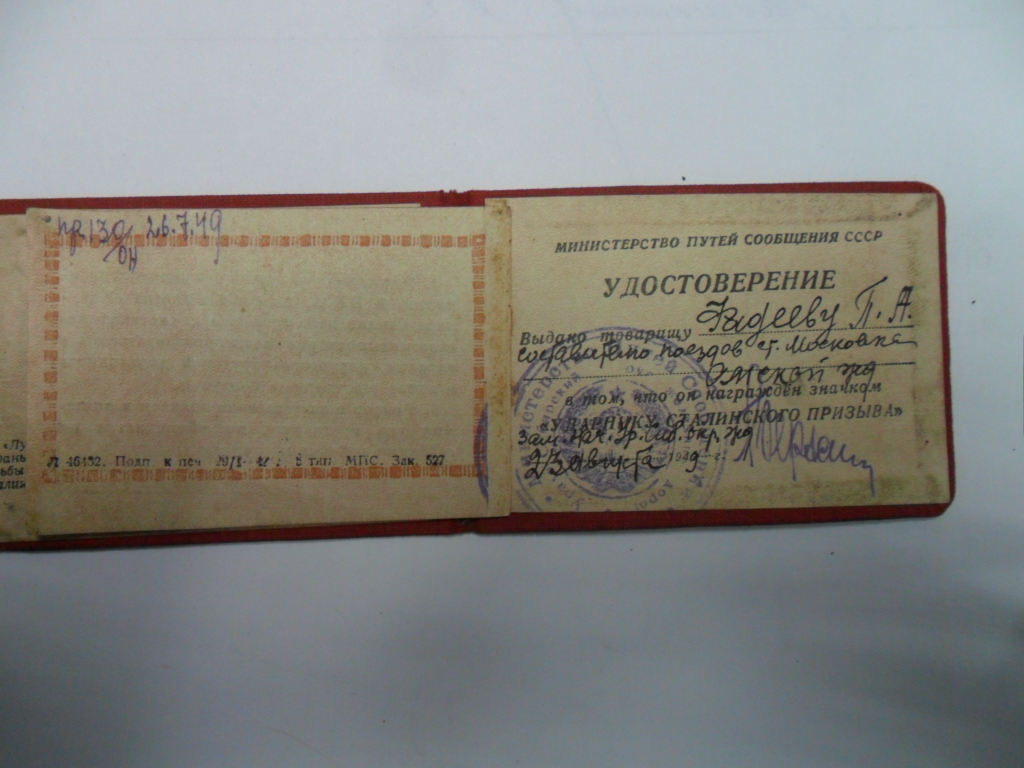 пр 139/ОН 26.7.49
«Лу
рань
ьбы
алия
Л 46452. Подп. к печ 29/I— г. 8 тип. МПС. Зак. 527
МИНИСТЕРСТВО ПУТЕЙ СООБЩЕНИЯ СССР
УДОСТОВЕРЕНИЕ
Выдано товарищу Фадееву П. А.
составителю поездов ст. Московка
Омской жд
в том, что он награжден значком
«УДАРНИКУ СТАЛИНСКОГО ПРИЗЫВА»
Зам. Нач. окр. жд
23 августа 1949 г.